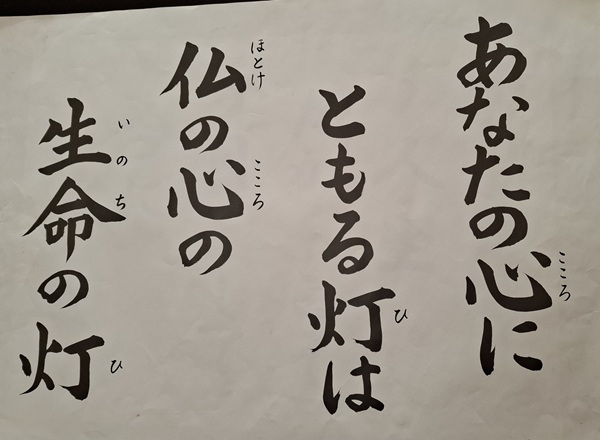 あなたの心に
こころ
ともる灯は
ひ
仏の心の
ほとけ
こころ
生命の灯
いのち
ひ